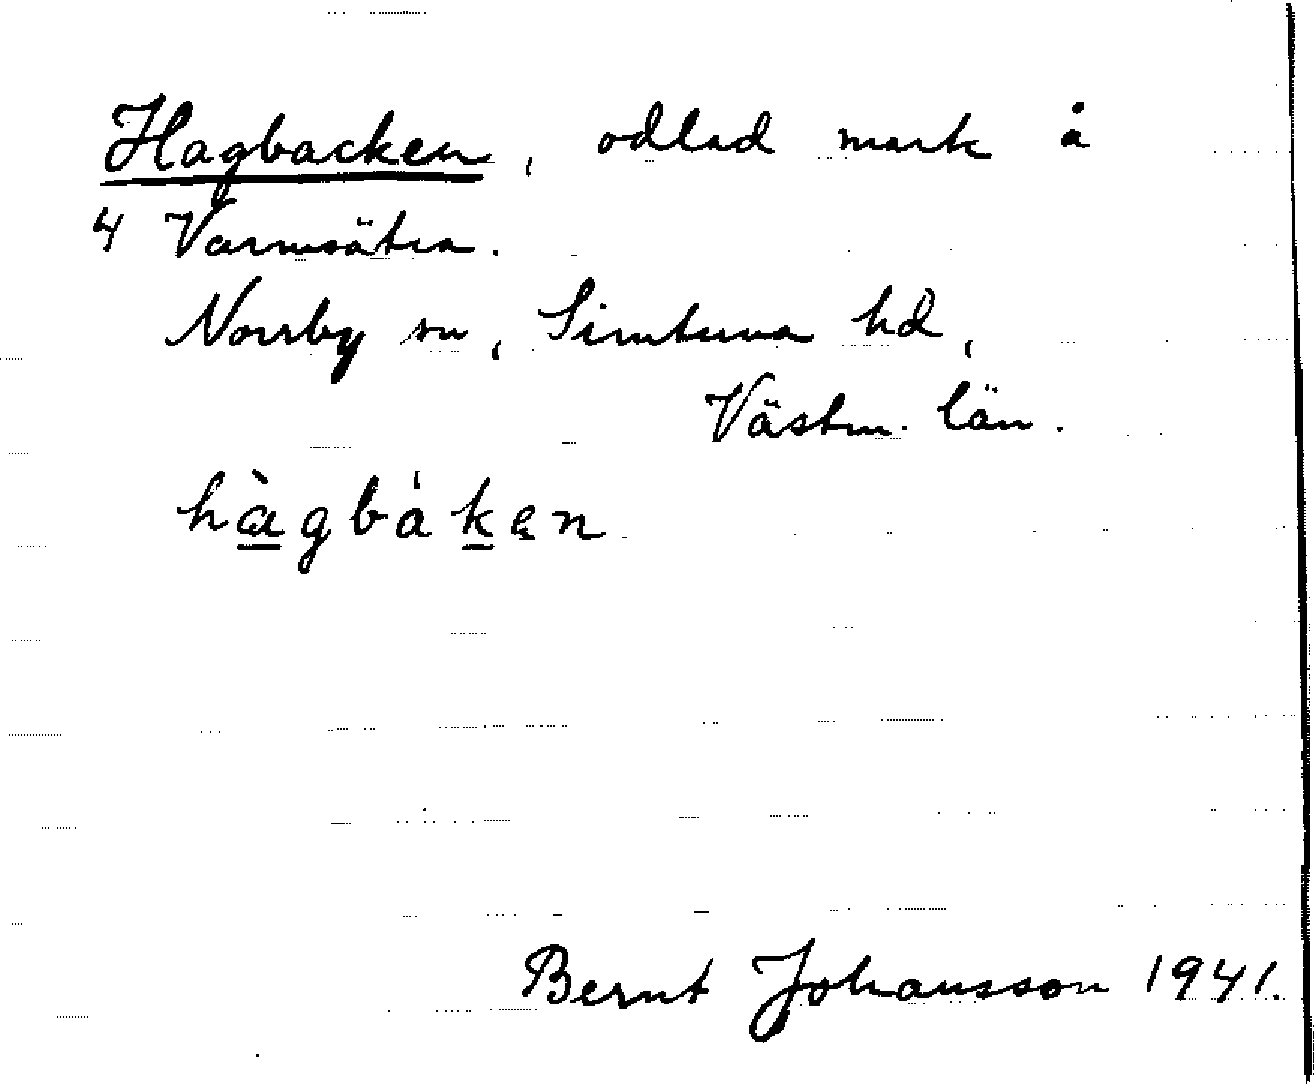 Hagbacken, odlad mark å
4 Varmsätra.
Norrby sn, Simtuna hd,
Västm. län.
hàgbáken
Bernt Johansson 1941.